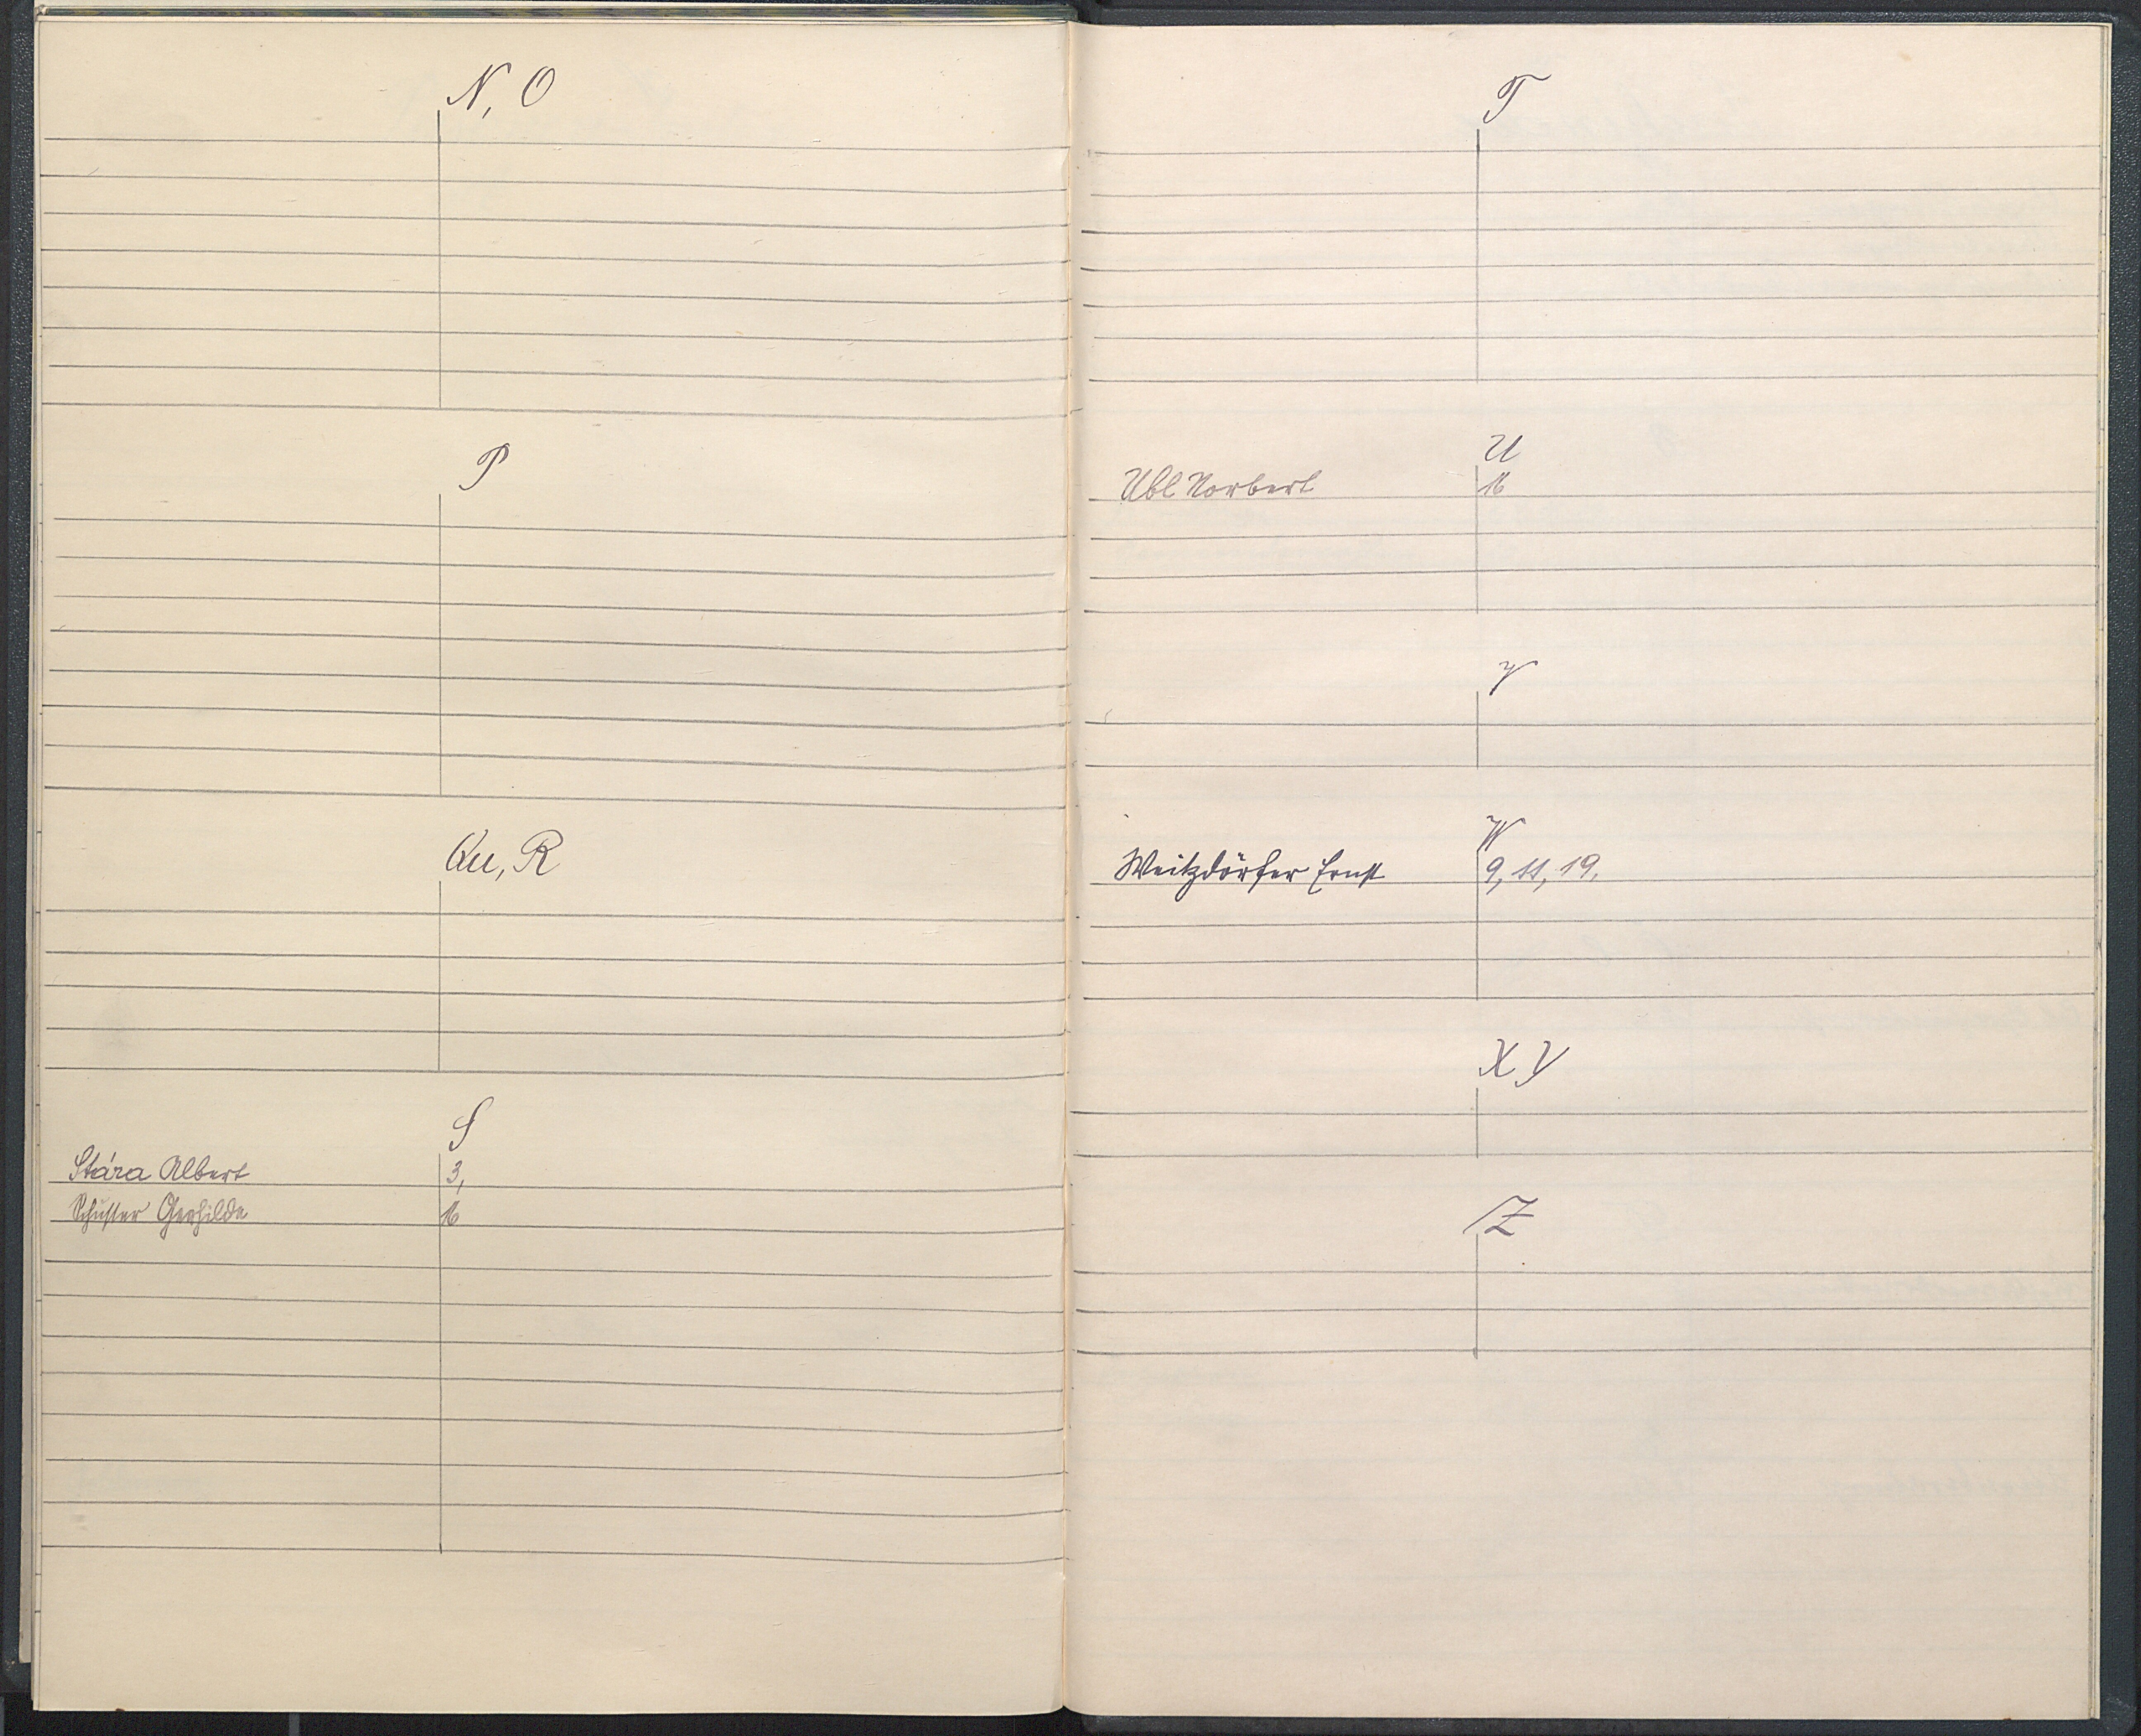 N, O
P
Qu, R
S
Stára Albert 3,
Schuster Gerhilde 16
T
U
Ubl Norbert 16
V
W
Weitzdörfer Ernst 9, 11, 19,
X Y
Z